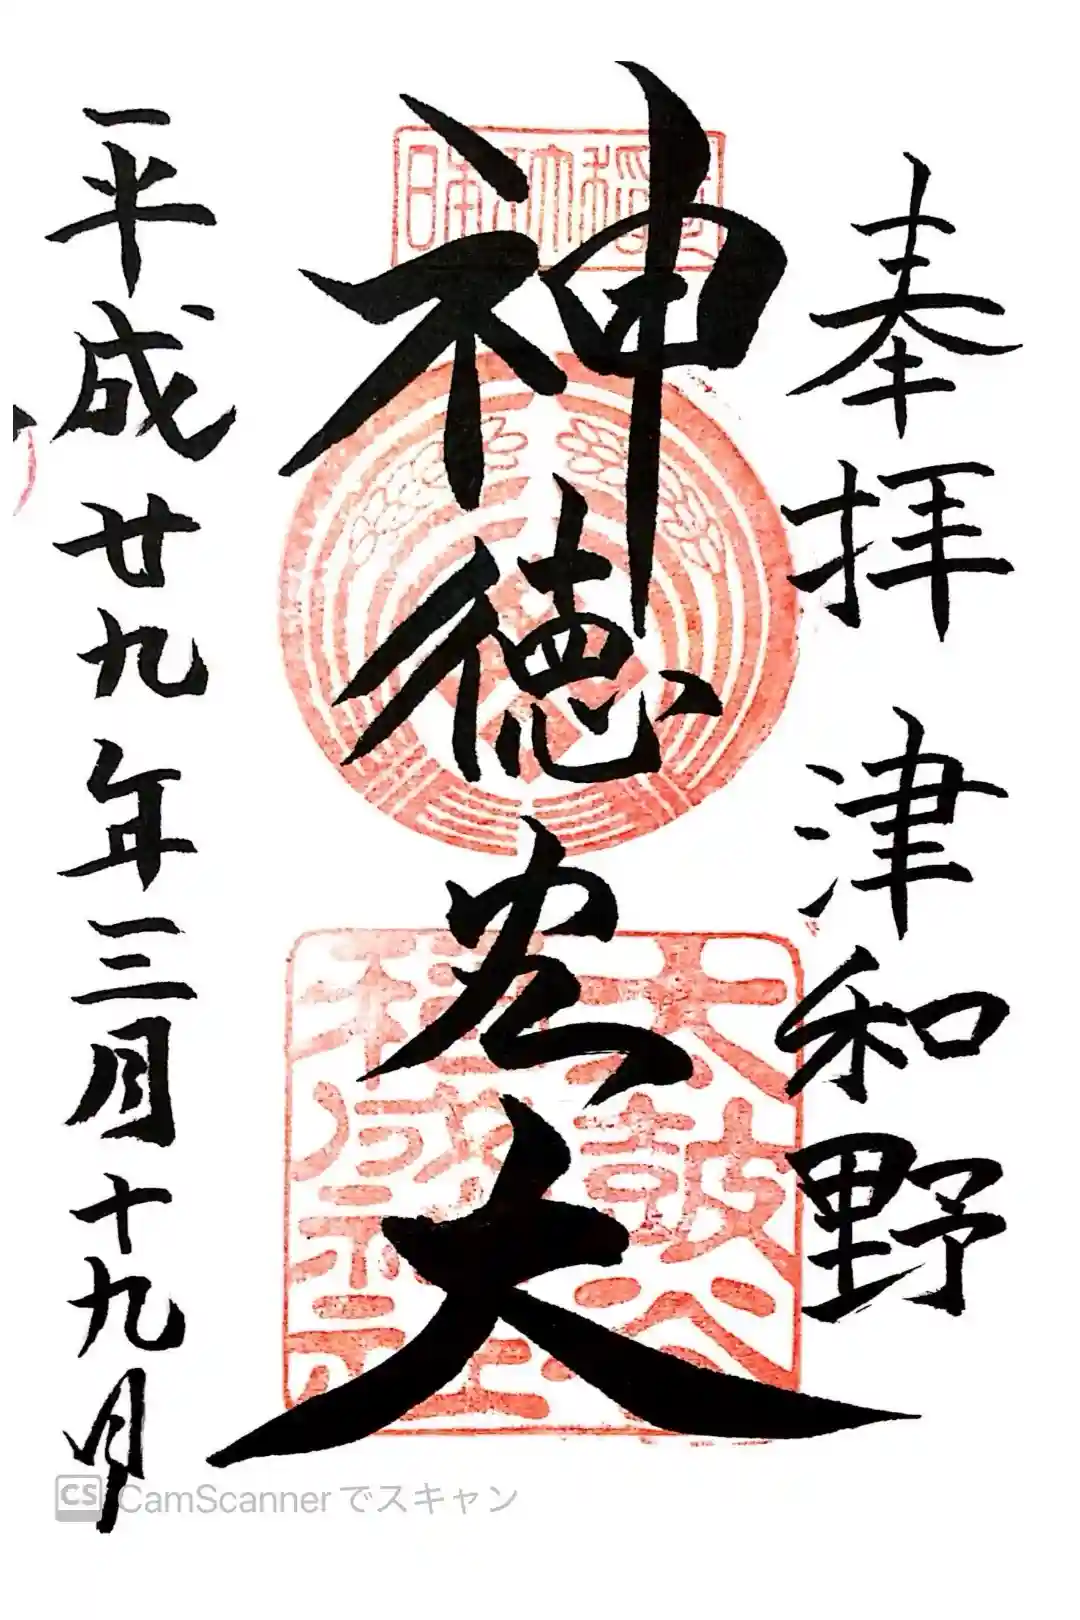 奉拝 津和野
神徳宏大
平成廿九年三月十九日
太皷谷
稲成神社
CamScannerでスキャン